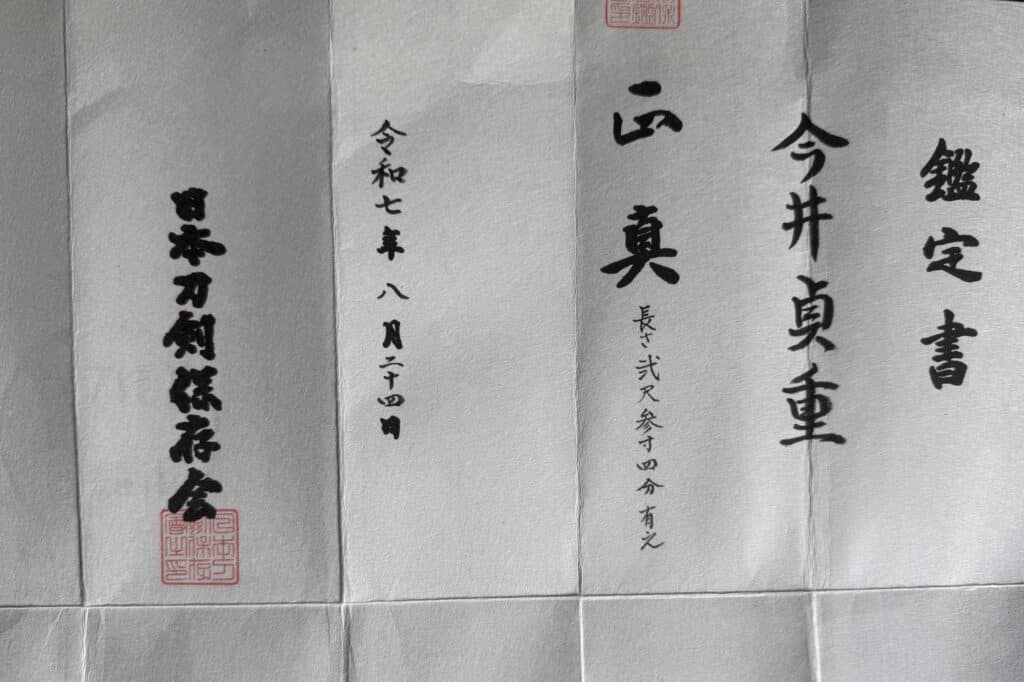 鑑定書
今井貞重
正真
長さ弐尺参寸四分有之
令和七年八月二十四日
日本刀剣保存会